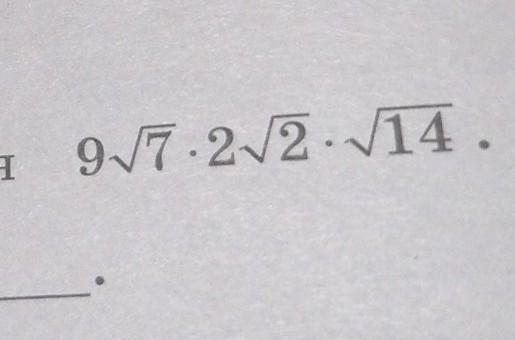 я 9√7 · 2√2 · √14 .
____.